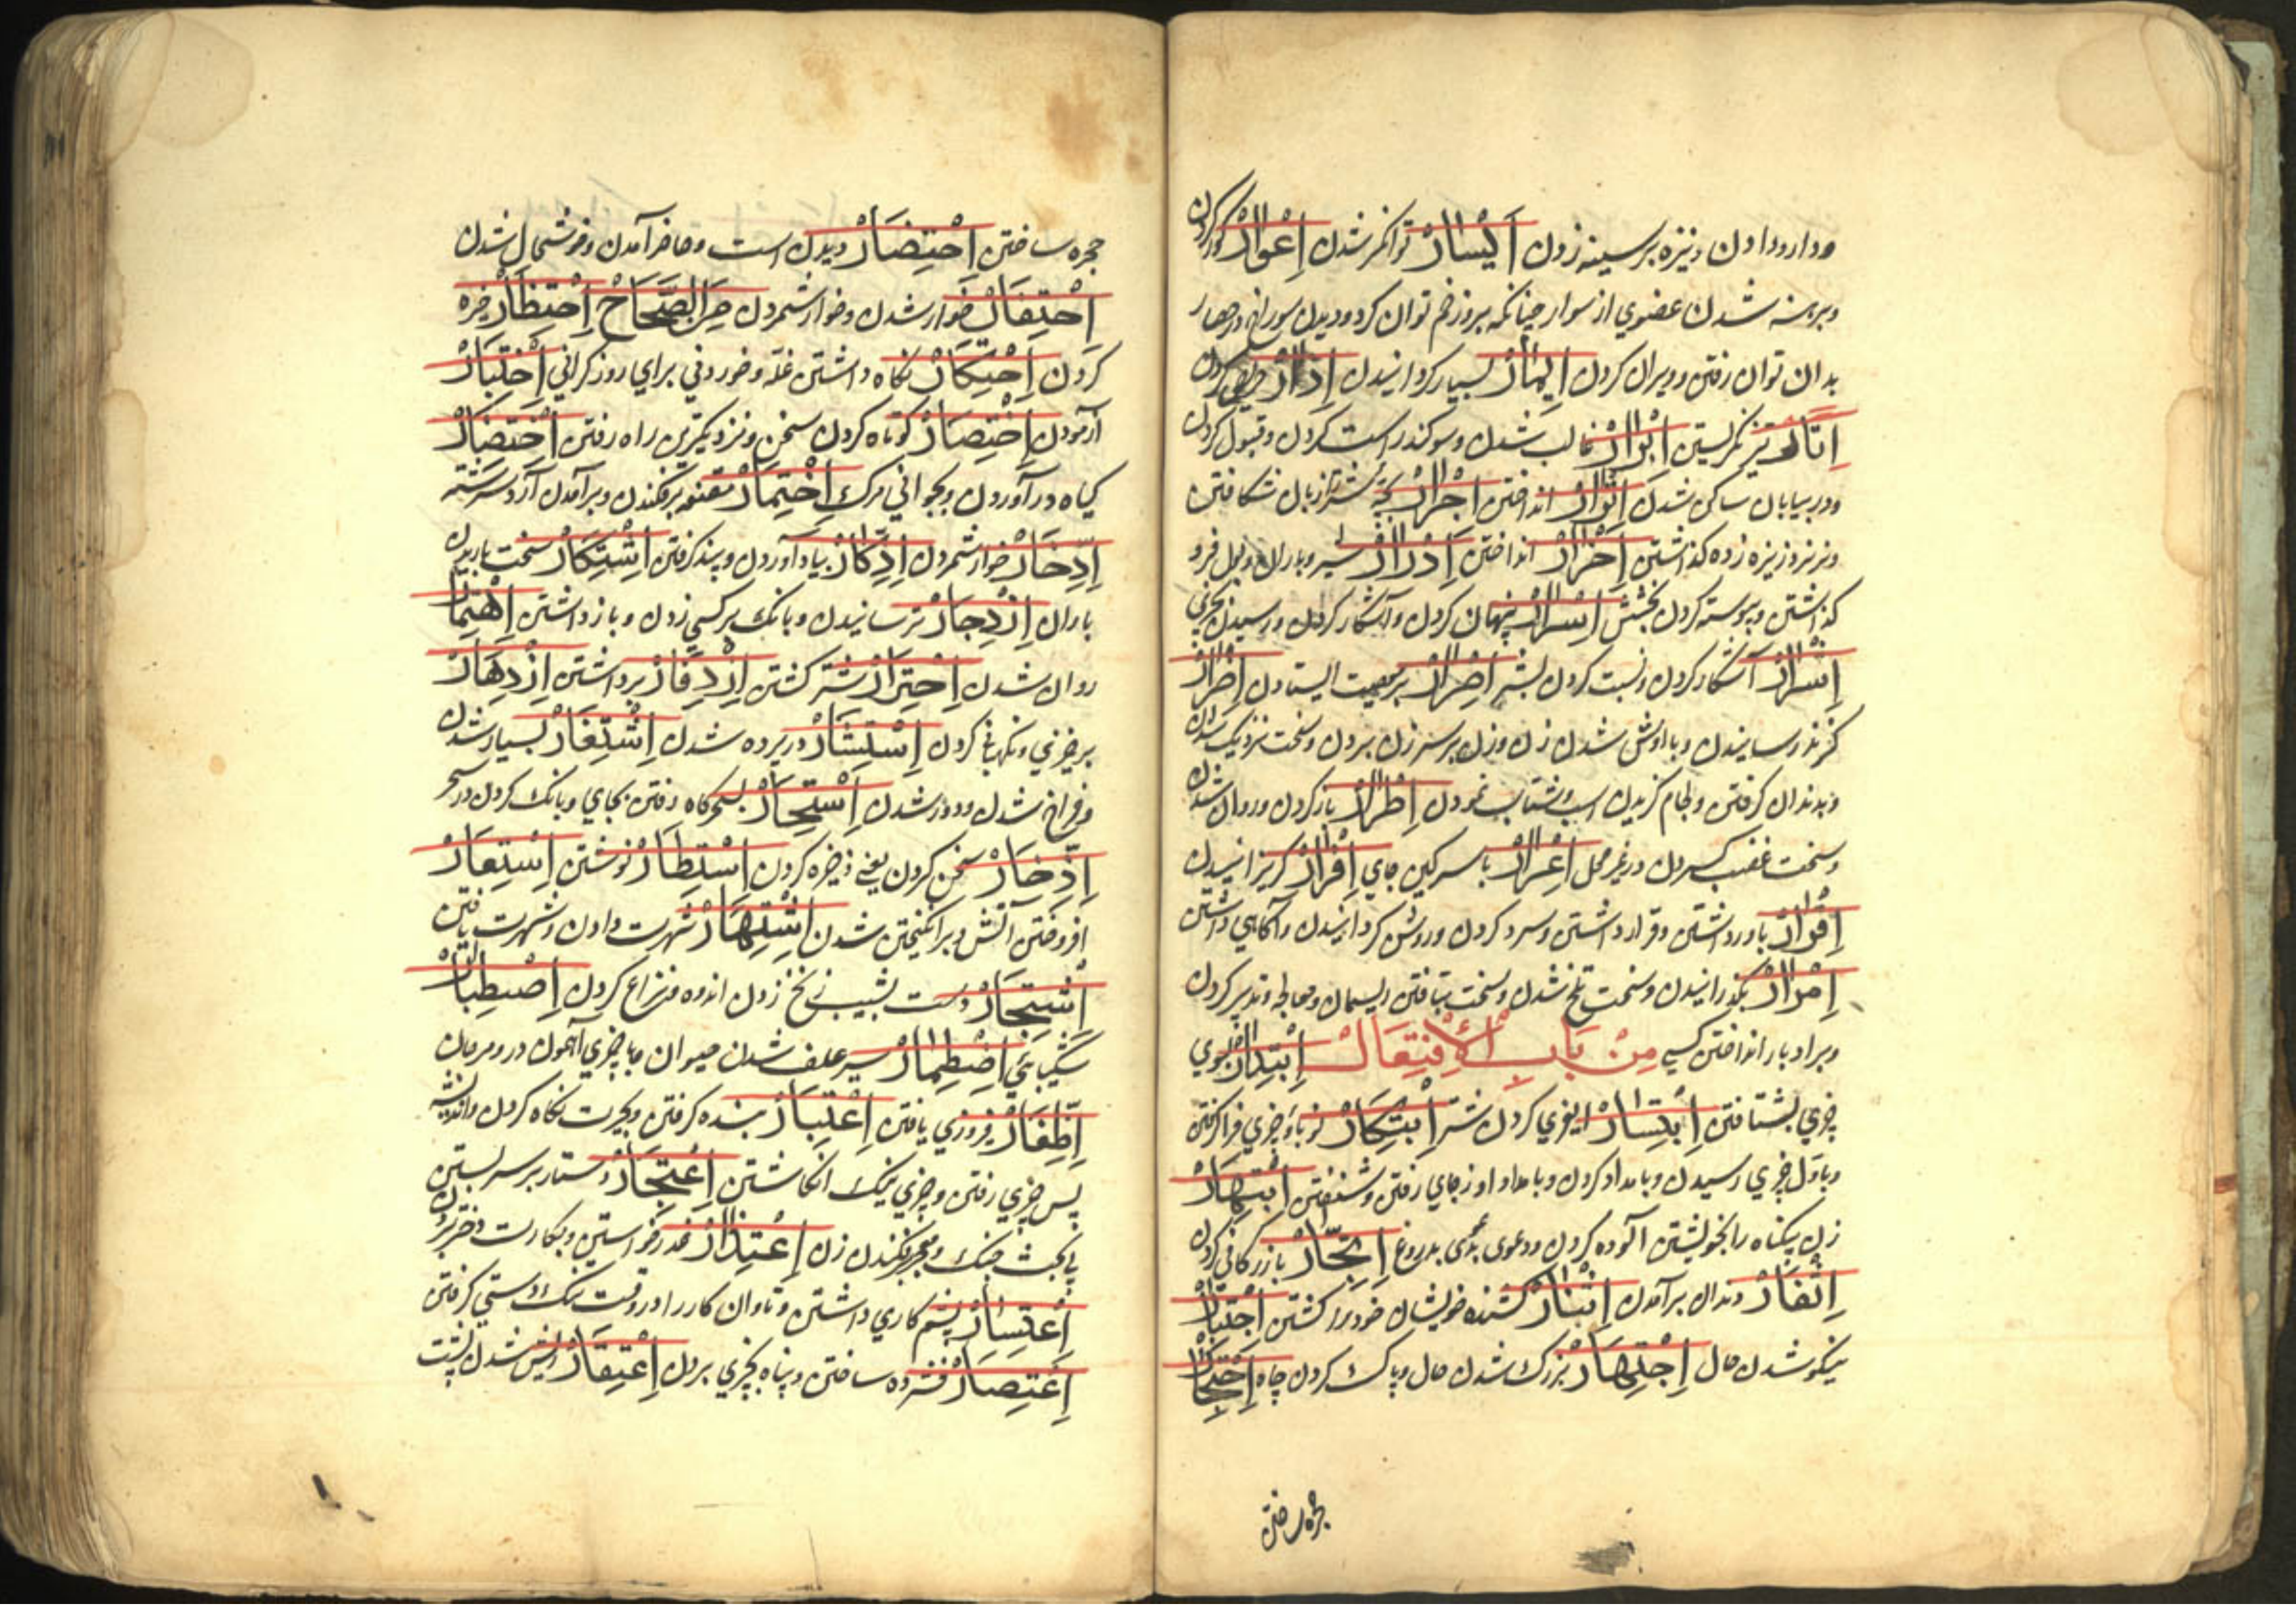 ودارو دادن ونیزه بر سینه زدن اَیْسَارْ توانکر شدن اِعْوَارْ کور کردن
وبرهنه شدن عضوی از سوار چنانکه بروزخم توان کرد ودیدن سوراخی در حصار
بدان توان رفتن وویران کردن بسیار کردانیدن
تیز نکریستن اِبْرَارْ غالب شدن وسوکند راست کردن وقبول کردن
ودر بیابان ساکن شدن انداختن اِجْرَارْ بچۀ شتر زبان شکافتن
ونیزه زده کذاشتن انداختن اِدْرَارْ شیر وباران وبول فرو
کذاشتن وپیوسته کردن بخشش اِسْرَارْ پنهان کردن وآشکار کردن ورسیدن بچیزی
اِشْرَارْ آشکار کردن ونسبت کردن بشر اِصْرَارْ بر معصیت ایستادن اِضْرَارْ
کزند رسانیدن شدن زن وزن بر سر زن بردن وسخت نزدیک شدن
وبدندان کرفتن ولجام کزیدن اسب وشتاب نمودن اِطْرَارْ باز کردن وروان شدن
وسخت غضب کردن در غیر محل اِعْرَارْ با سرکین جای اِفْرَارْ کریزانیدن
اِقْرَارْ باور داشتن وقرار داشتن وسرد کردن وروشن کردانیدن وآکاهی داشتن
اِمْرَارْ بکذرانیدن وسخت تلخ شدن وسخت بتافتن ریسمان ومعالجه وتدبیر کردن
وبر ادبار انداختن کسی مِنْ بَابِ الْاِفْتِعَالْ اِبْتِدَارْ بسوی
چیزی بشتافتن اِبْتِسَارْ کردن شتر اِبْتِکَارْ نوباوۀ چیزی فراکرفتن
وباول چیزی رسیدن وبامداد کردن وبامداد از جای رفتن وشنفتن اِبْتِهَارْ
زن بیکناه را بخویشتن آلوده کردن ودعوی بدی بدروغ اِتِّجَارْ بازرکانی کردن
اِثِّغَارْ دندان برآمدن اِثِّئَارْ کشنده خویشان خود را کشتن اِجْتِبَارْ
نیکو شدن حال اِجْتِهَارْ بزرک شدن حال وپاک کردن چاه اِحْتِجَارْ
حجره ساختن
حجره ساختن اِحْتِضَارْ دیدن است وحاضر آمدن وخوشحال شدن
اِحْتِقَارْ خوار شدن وخوار شمردن مِنَ الصِّحَاحْ اِحْتِظَارْ حظیره
کردن اِحْتِکَارْ نکاه داشتن غله وخوردنی برای روز کرانی اِخْتِبَارْ
آزمودن اِخْتِصَارْ کوتاه کردن سخن ونزدیکترین راه رفتن اِخْتِضَارْ
کیاه درآوردن وبجوانی مرک اِخْتِمَارْ مقنعه برفکندن وبرآمدن آرد سرشته
اِدِّخَارْ خوار شمردن اِدِّکَارْ بیاد آوردن وپند کرفتن اِشْتِکَارْ سخت باریدن
باران اِزْدِجَارْ ترسانیدن وبانک بر کسی زدن وباز داشتن اِهْتِمَارْ
روان شدن اِجْتِزَارْ شتر کشتن اِزْدِفَارْ برداشتن اِزْدِهَارْ
برخیزی ونکهبانی کردن اِسْتِتَارْ در پرده شدن اِشْتِغَارْ بسیار شدن
وفراخ شدن ودور شدن اِسْتِحَارْ بسحرکاه رفتن بجای وبانک کردن در سحر
اِذِّخَارْ سخن کردن یعنی ذخیره کردن اِسْتِطَارْ نوشتن اِسْتِعَارْ
افروختن آتش وبرانکیختن شدن اِشْتِهَارْ شهرت دادن وشهرت یافتن
اِشْتِجَارْ دست بشیب زنخ زدن اندوه ونزاع کردن اِصْطِبَارْ
شکیبائی اِضْطِمَارْ سیر علف شدن حیوان
اِظِّفَارْ فیروزی یافتن اِعْتِبَارْ پند کرفتن وبحیرت نکاه کردن واندیشه
پس چیزی رفتن وچیزی نیک انکاشتن اِعْتِجَارْ دستار بر سر بستن
ومعجر فکندن زن اِعْتِذَارْ عذر خواستن وبکارت دختر بردن
اِعْتِسَارْ بستم کاری داشتن وتاوان کار را در وقت تنک دستی کرفتن
اِعْتِصَارْ فشرده ساختن وپناه بچیزی بردن اِعْتِقَارْ ریش شدن پشت